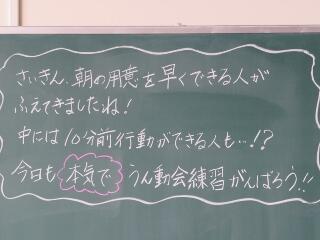 さいきん、朝の用意を早くできる人が
ふえてきましたね！
中には10分前行動ができる人も…!?
今日も本気でうん動会練習がんばろう!!